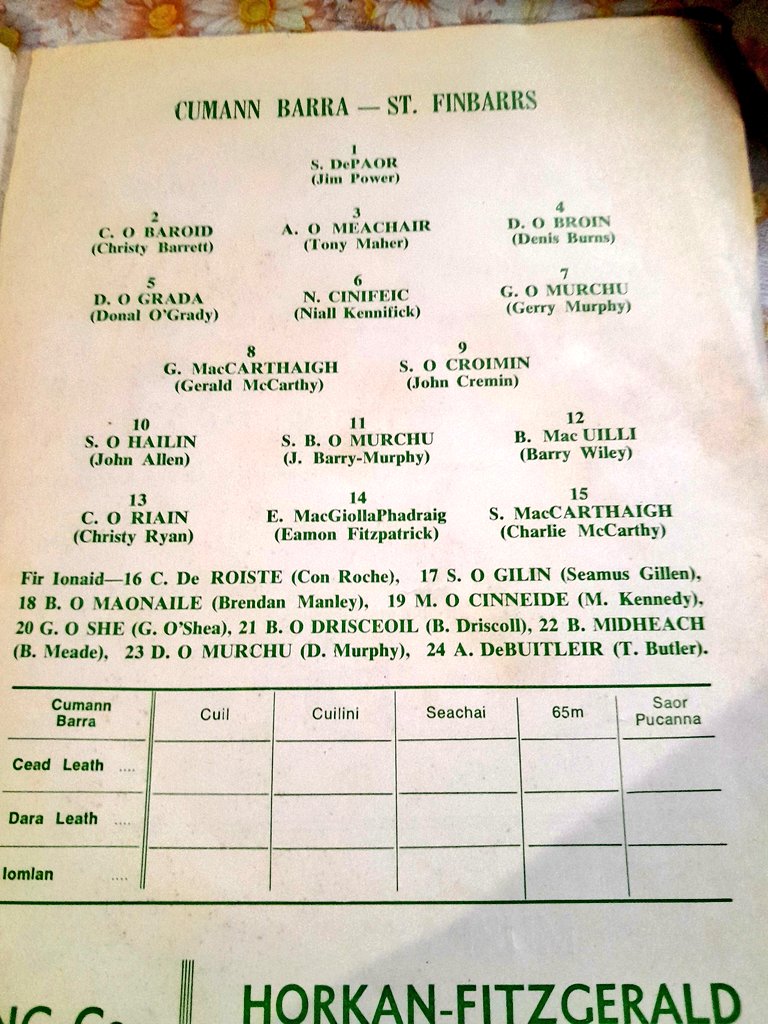 CUMANN BARRA — ST. FINBARRS
1
S. DePAOR
(Jim Power)
2 3 4
C. O BAROID A. O MEACHAIR D. O BROIN
(Christy Barrett) (Tony Maher) (Denis Burns)
5 6 7
D. O GRADA N. CINIFEIC G. O MURCHU
(Donal O'Grady) (Niall Kennifick) (Gerry Murphy)
8 9
G. MacCARTHAIGH S. O CROIMIN
(Gerald McCarthy) (John Cremin)
10 11 12
S. O HAILIN S. B. O MURCHU B. Mac UILLI
(John Allen) (J. Barry-Murphy) (Barry Wiley)
13 14 15
C. O RIAIN E. MacGiollaPhadraig S. MacCARTHAIGH
(Christy Ryan) (Eamon Fitzpatrick) (Charlie McCarthy)
Fir Ionaid—16 C. De ROISTE (Con Roche), 17 S. O GILIN (Seamus Gillen),
18 B. O MAONAILE (Brendan Manley), 19 M. O CINNEIDE (M. Kennedy),
20 G. O SHE (G. O'Shea), 21 B. O DRISCEOIL (B. Driscoll), 22 B. MIDHEACH
(B. Meade), 23 D. O MURCHU (D. Murphy), 24 A. DeBUITLEIR (T. Butler).
Cumann Barra Cuil Cuilini Seachai 65m Saor Pucanna
Cead Leath ....
Dara Leath ....
Iomlan ....
HORKAN-FITZGERALD